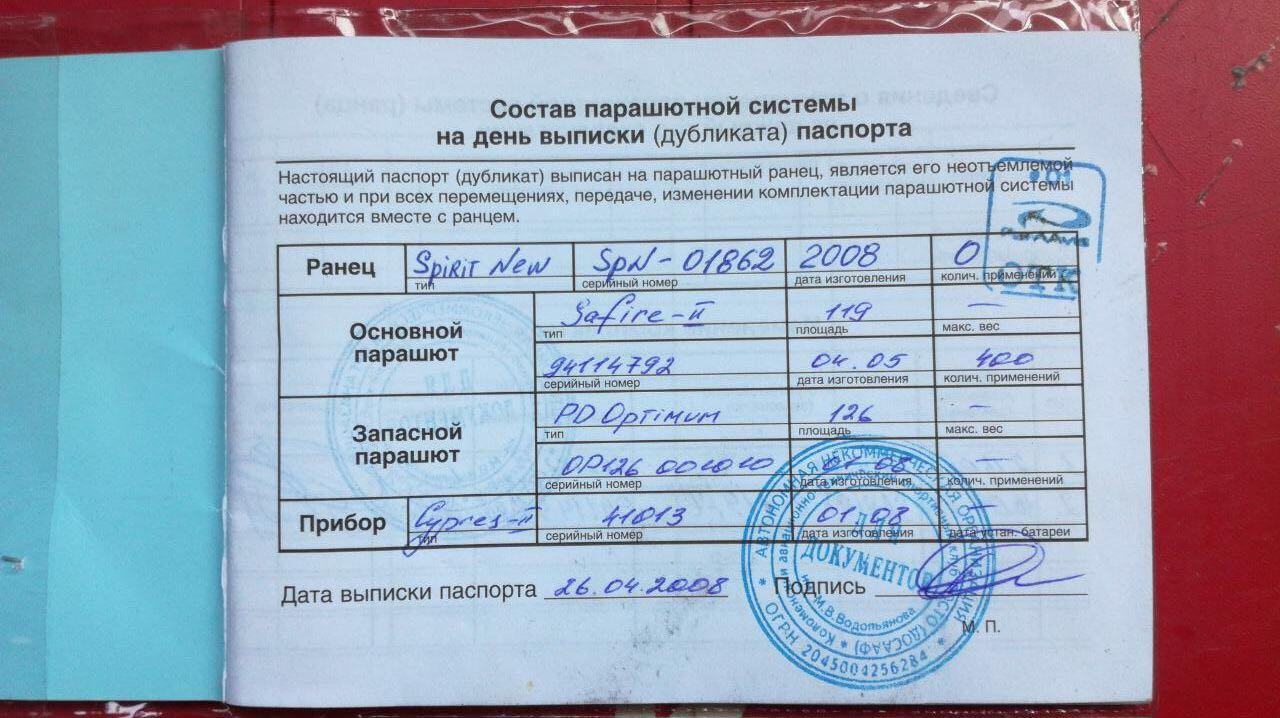 Состав парашютной системы
на день выписки (дубликата) паспорта
Настоящий паспорт (дубликат) выписан на парашютный ранец, является его неотъемлемой
частью и при всех перемещениях, передаче, изменении комплектации парашютной системы
находится вместе с ранцем.
Ранец Spirit New SpN-01862 2008 0
тип серийный номер дата изготовления колич. применений
ОТК
Основной парашют
Safire-II 119 —
тип площадь макс. вес
94114792 04.05 400
серийный номер дата изготовления колич. применений
Запасной парашют
PD Optimum 126 —
тип площадь макс. вес
OP126 001010 01-08 —
серийный номер дата изготовления колич. применений
Прибор Cypres-II 41013 01 08 —
тип серийный номер дата изготовления дата устан. батареи
Дата выписки паспорта 26.04.2008 Подпись
М. П.
АВТОНОМНАЯ НЕКОММЕРЧЕСКАЯ ОРГАНИЗАЦИЯ
ДЛЯ
ДОКУМЕНТОВ
М.В.Водопьянова
ОГРН 2045004256284